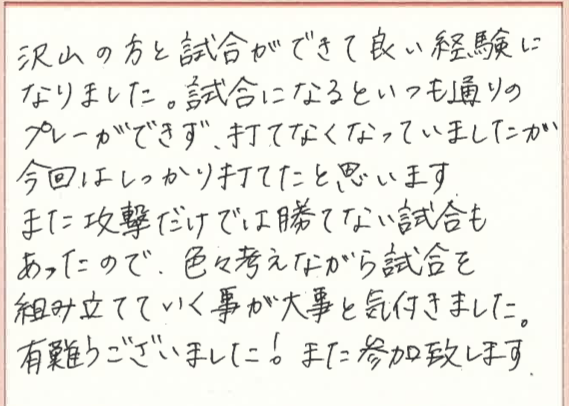 沢山の方と試合ができて良い経験に
なりました。試合になるといつも通りの
プレーができず、打てなくなっていましたが
今回はしっかり打てたと思います
また攻撃だけでは勝てない試合も
あったので、色々考えながら試合を
組み立てていく事が大事と気付きました。
有難うございました！また参加致します.